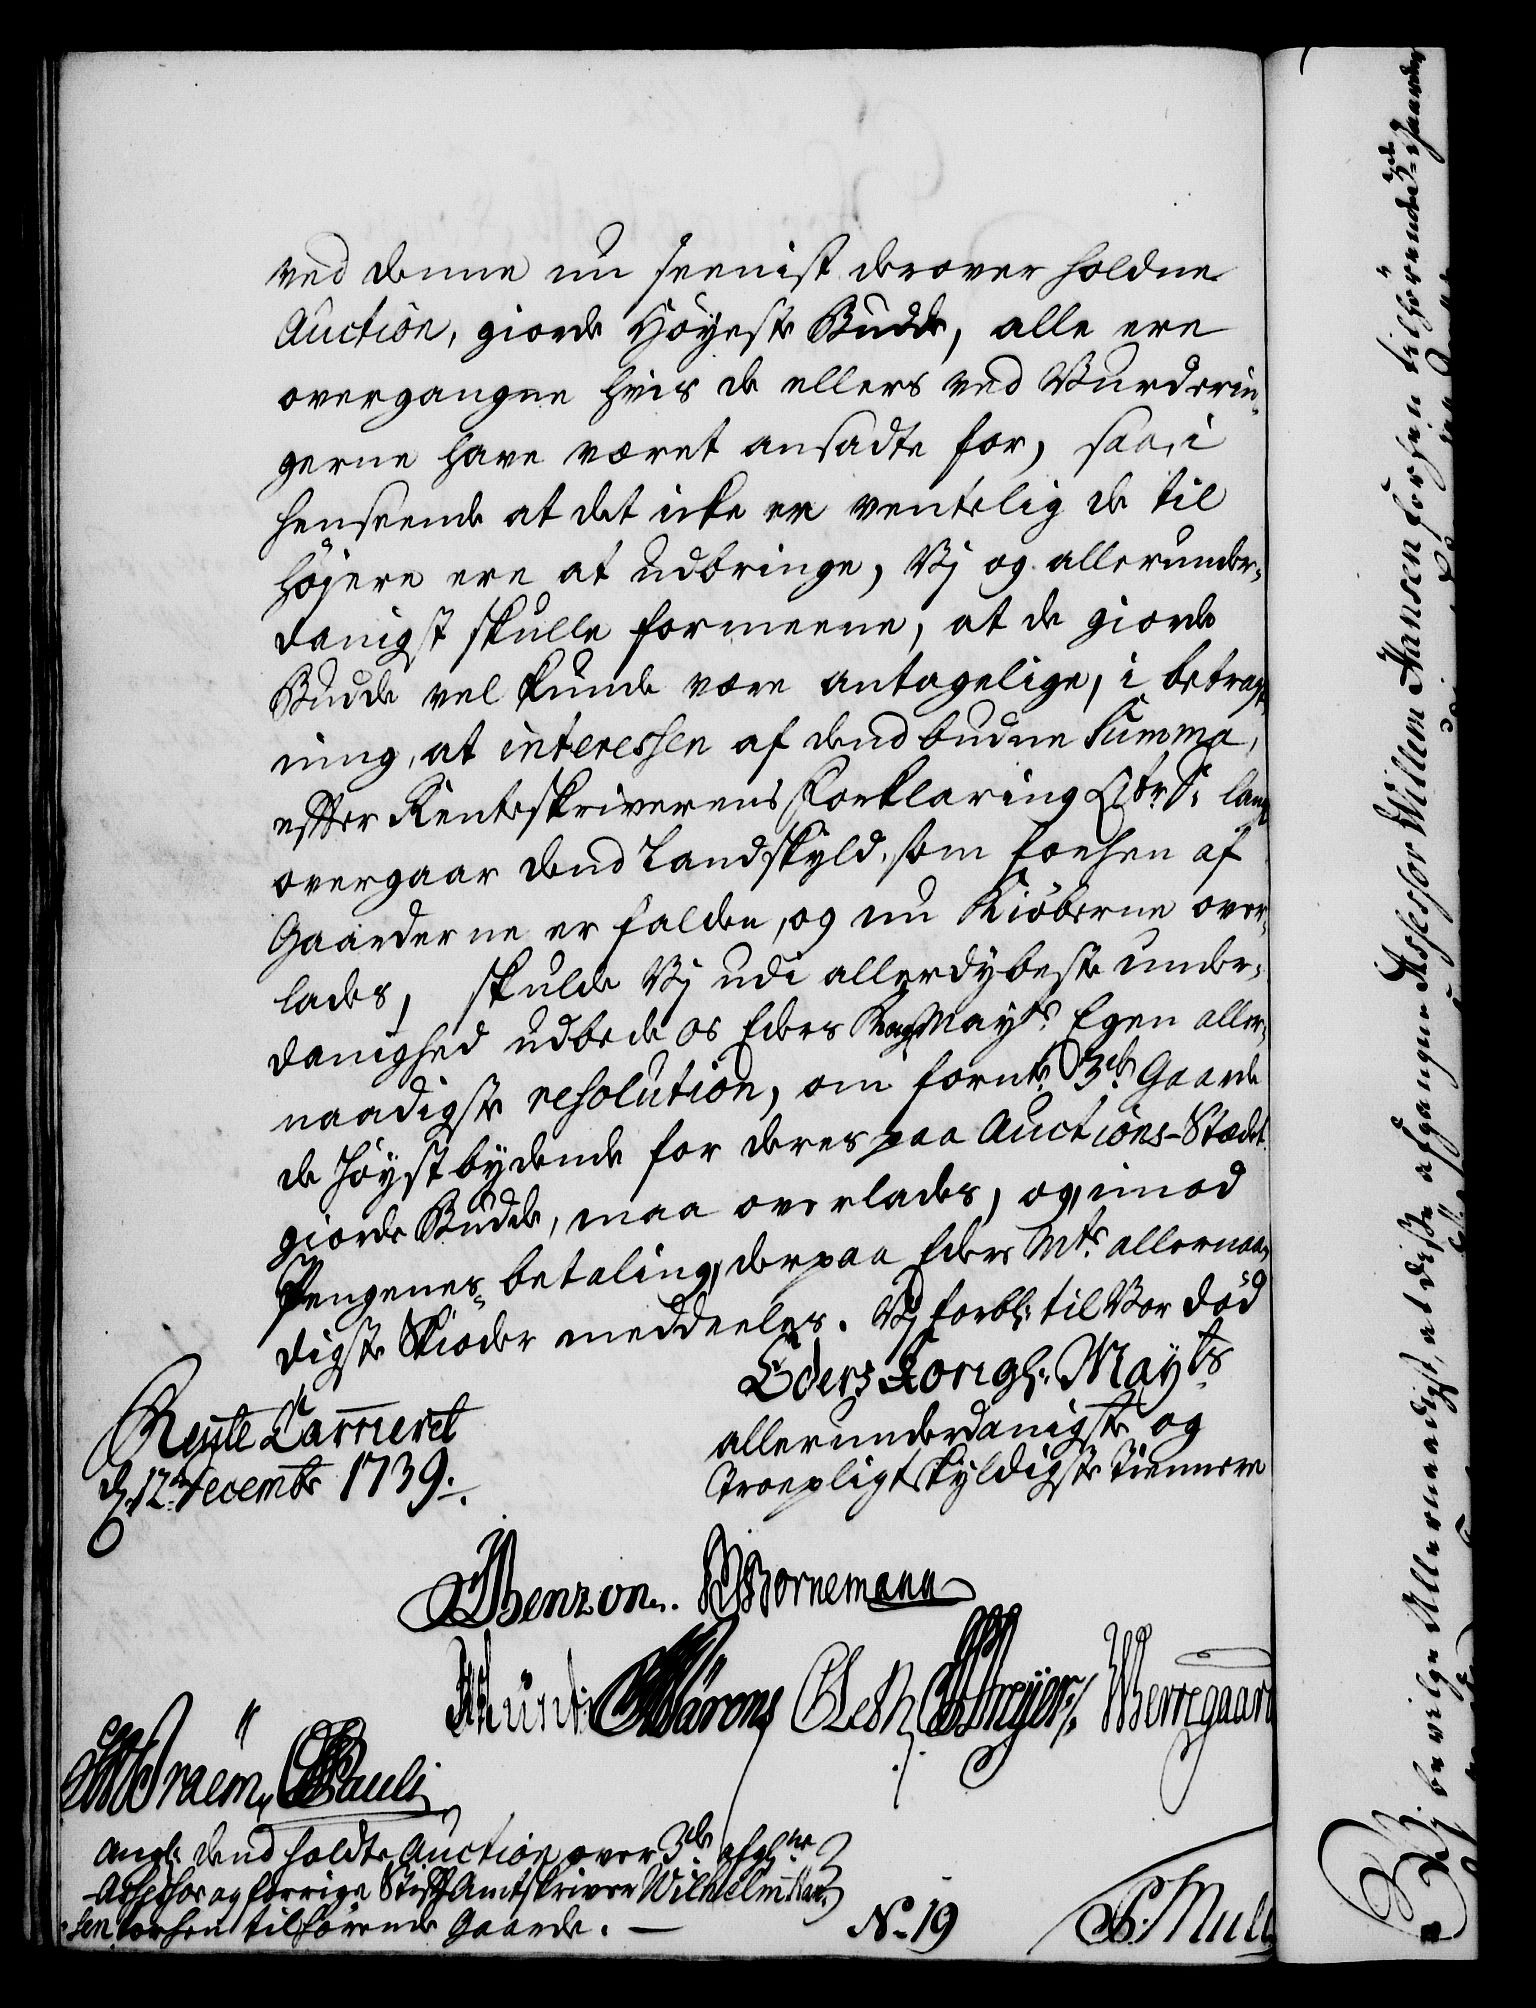 ved denne nu seenist derover holdne
Auction, giorde Höyeste Budde, alle ere
overgangne hvis de ellers ved Vurderin-
gerne have været ansadte for, saa, i
henseende at det icke er ventelig de til
höjere ere at udbringe, Vj og allerunder-
danigst skulle formeene, at de giorde
Budde vel kunde være antagelige, i betragt-
ning, at interessen af dend budne Summa,
efter Renteskriverens Forklaring Litr: S: langt
overgaar dend Landskyld, som forhen af
Gaarderne er falden, og nu Kiöberne over-
lades, skulde Vj udi allerdybeste under-
danighed udbede os Eders Kongl May.ts Egen aller-
naadigste resolution, om fornte 3de Gaarde
de Höystbydende for deres paa Auctions-Stædet
giorde Budde, maa overlades, og, imod
Pengenes betaling, derpaa Eders Mts allernaa-
digste Skiöder meddeeles. Vj forbl: til Vor död
Eders Kongl: Mayts
allerunderdanigste og
Troepligtskyldigste Tiennere
Rente Cammeret
d. 12. Decembr 1739.
Benzon. Bornemann
Wærregaard
Fræm, Pauli
Angl: dend holdte Auction over 3de afgl:ne
Assessor og forrige StiftAmtskriver Wilhelm Han-
sen forhen tilhörende Gaarde. —
No 19
Vj bevilge Allernaadigst, at disse afgangne Assessor Willem Hansen forhen tilhörende 3de Gaarder